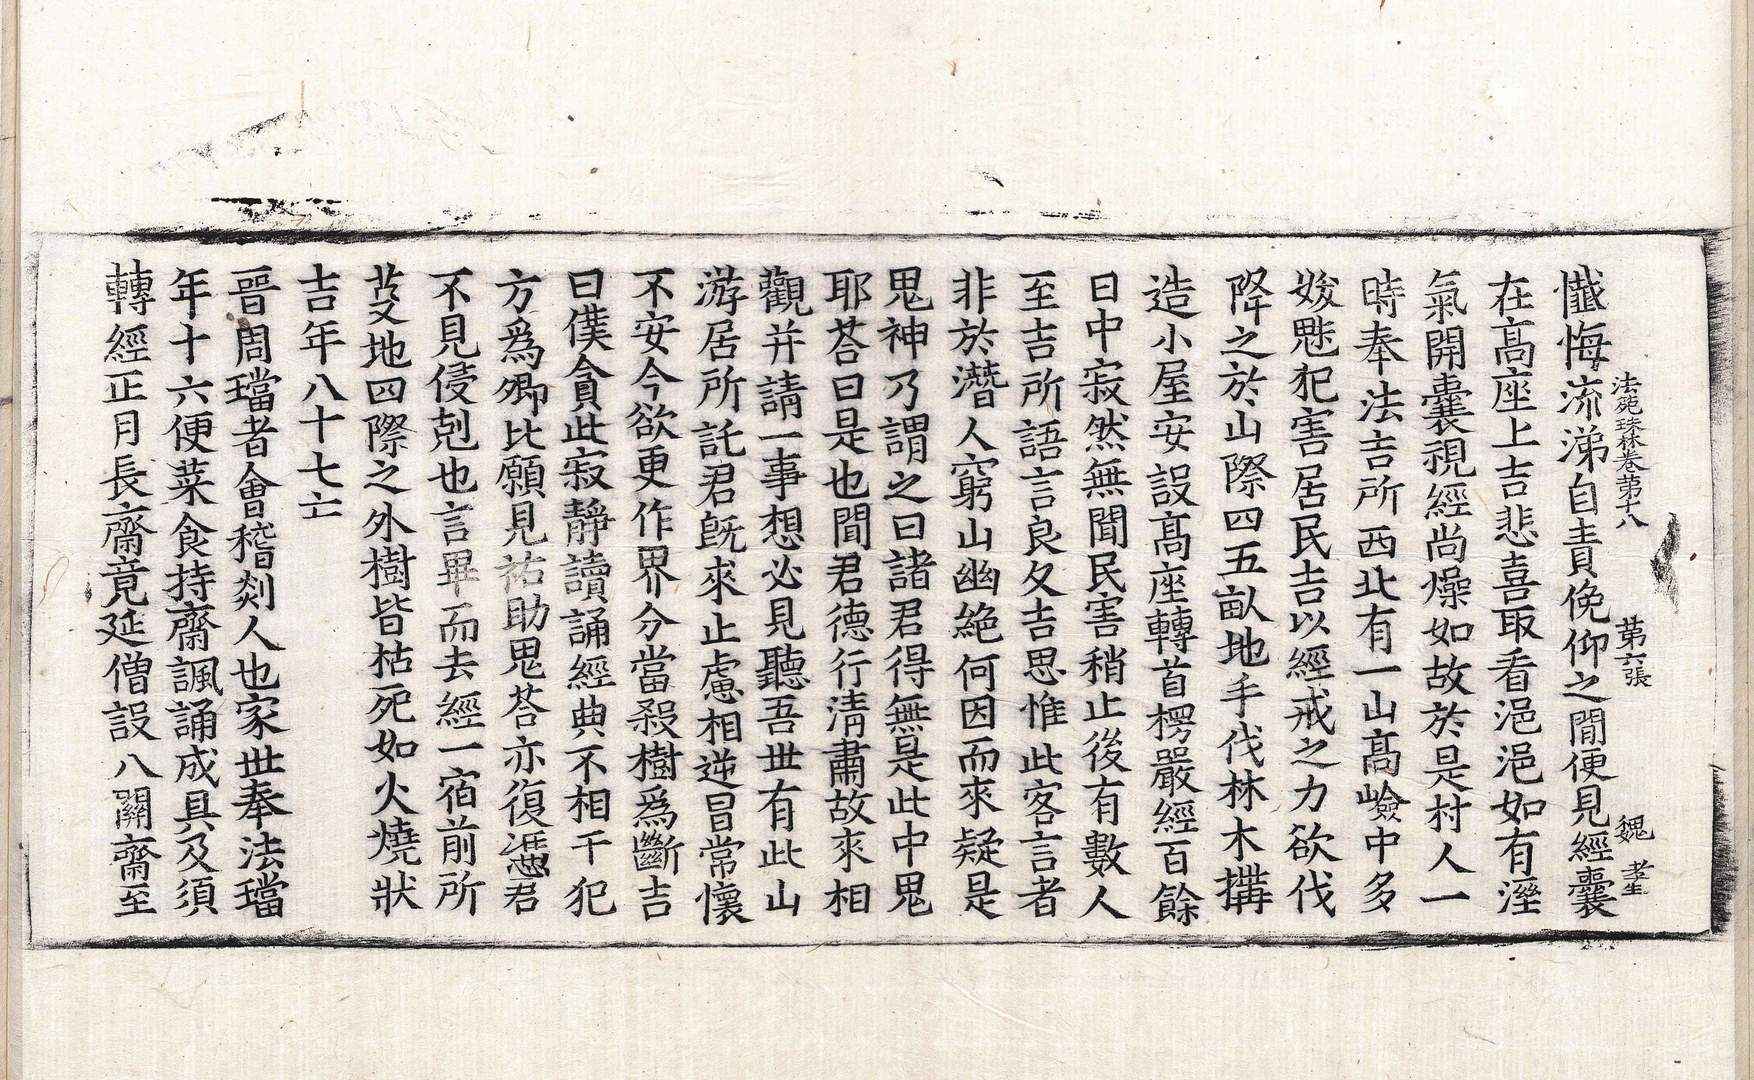 法苑珠林卷第十八 第六張 魏孝生
懺悔流涕自責俛仰之間便見經囊
在高座上吉悲喜取看浥浥如有溼
氣開囊視經尚燥如故於是村人一
時奉法吉所西北有一山高嶮中多
妭魅犯害居民吉以經戒之力欲伐
降之於山際四五畝地手伐林木搆
造小屋安設高座轉首楞嚴經百餘
日中寂然無聞民害稍止後有數人
至吉所語言良久吉思惟此客言者
非於潛人窮山幽絶何因而來疑是
鬼神乃謂之曰諸君得無是此中鬼
耶荅曰是也聞君德行清肅故來相
觀并請一事想必見聽吾世有此山
游居所託君旣求止慮相逆冒常懷
不安今欲更作界分當殺樹爲斷吉
曰僕貪此寂靜讀誦經典不相干犯
方爲卿比願見祐助鬼荅亦復憑君
不見侵剋也言畢而去經一宿前所
芟地四際之外樹皆枯死如火燒狀
吉年八十七亡
晉周璫者會稽剡人也家世奉法璫
年十六便菜食持齋諷誦成具及須
轉經正月長齋竟延僧設八關齋至